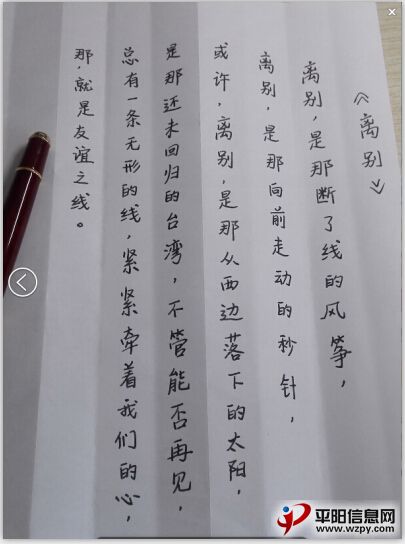 《离别》
离别,是那断了线的风筝,
离别,是那向前走动的秒针,
或许,离别,是那从西边落下的太阳,
是那还未回归的台湾,不管能否再见,
总有一条无形的线,紧紧牵着我们的心,
那,就是友谊之线。
平阳信息网
www.wzpy.com